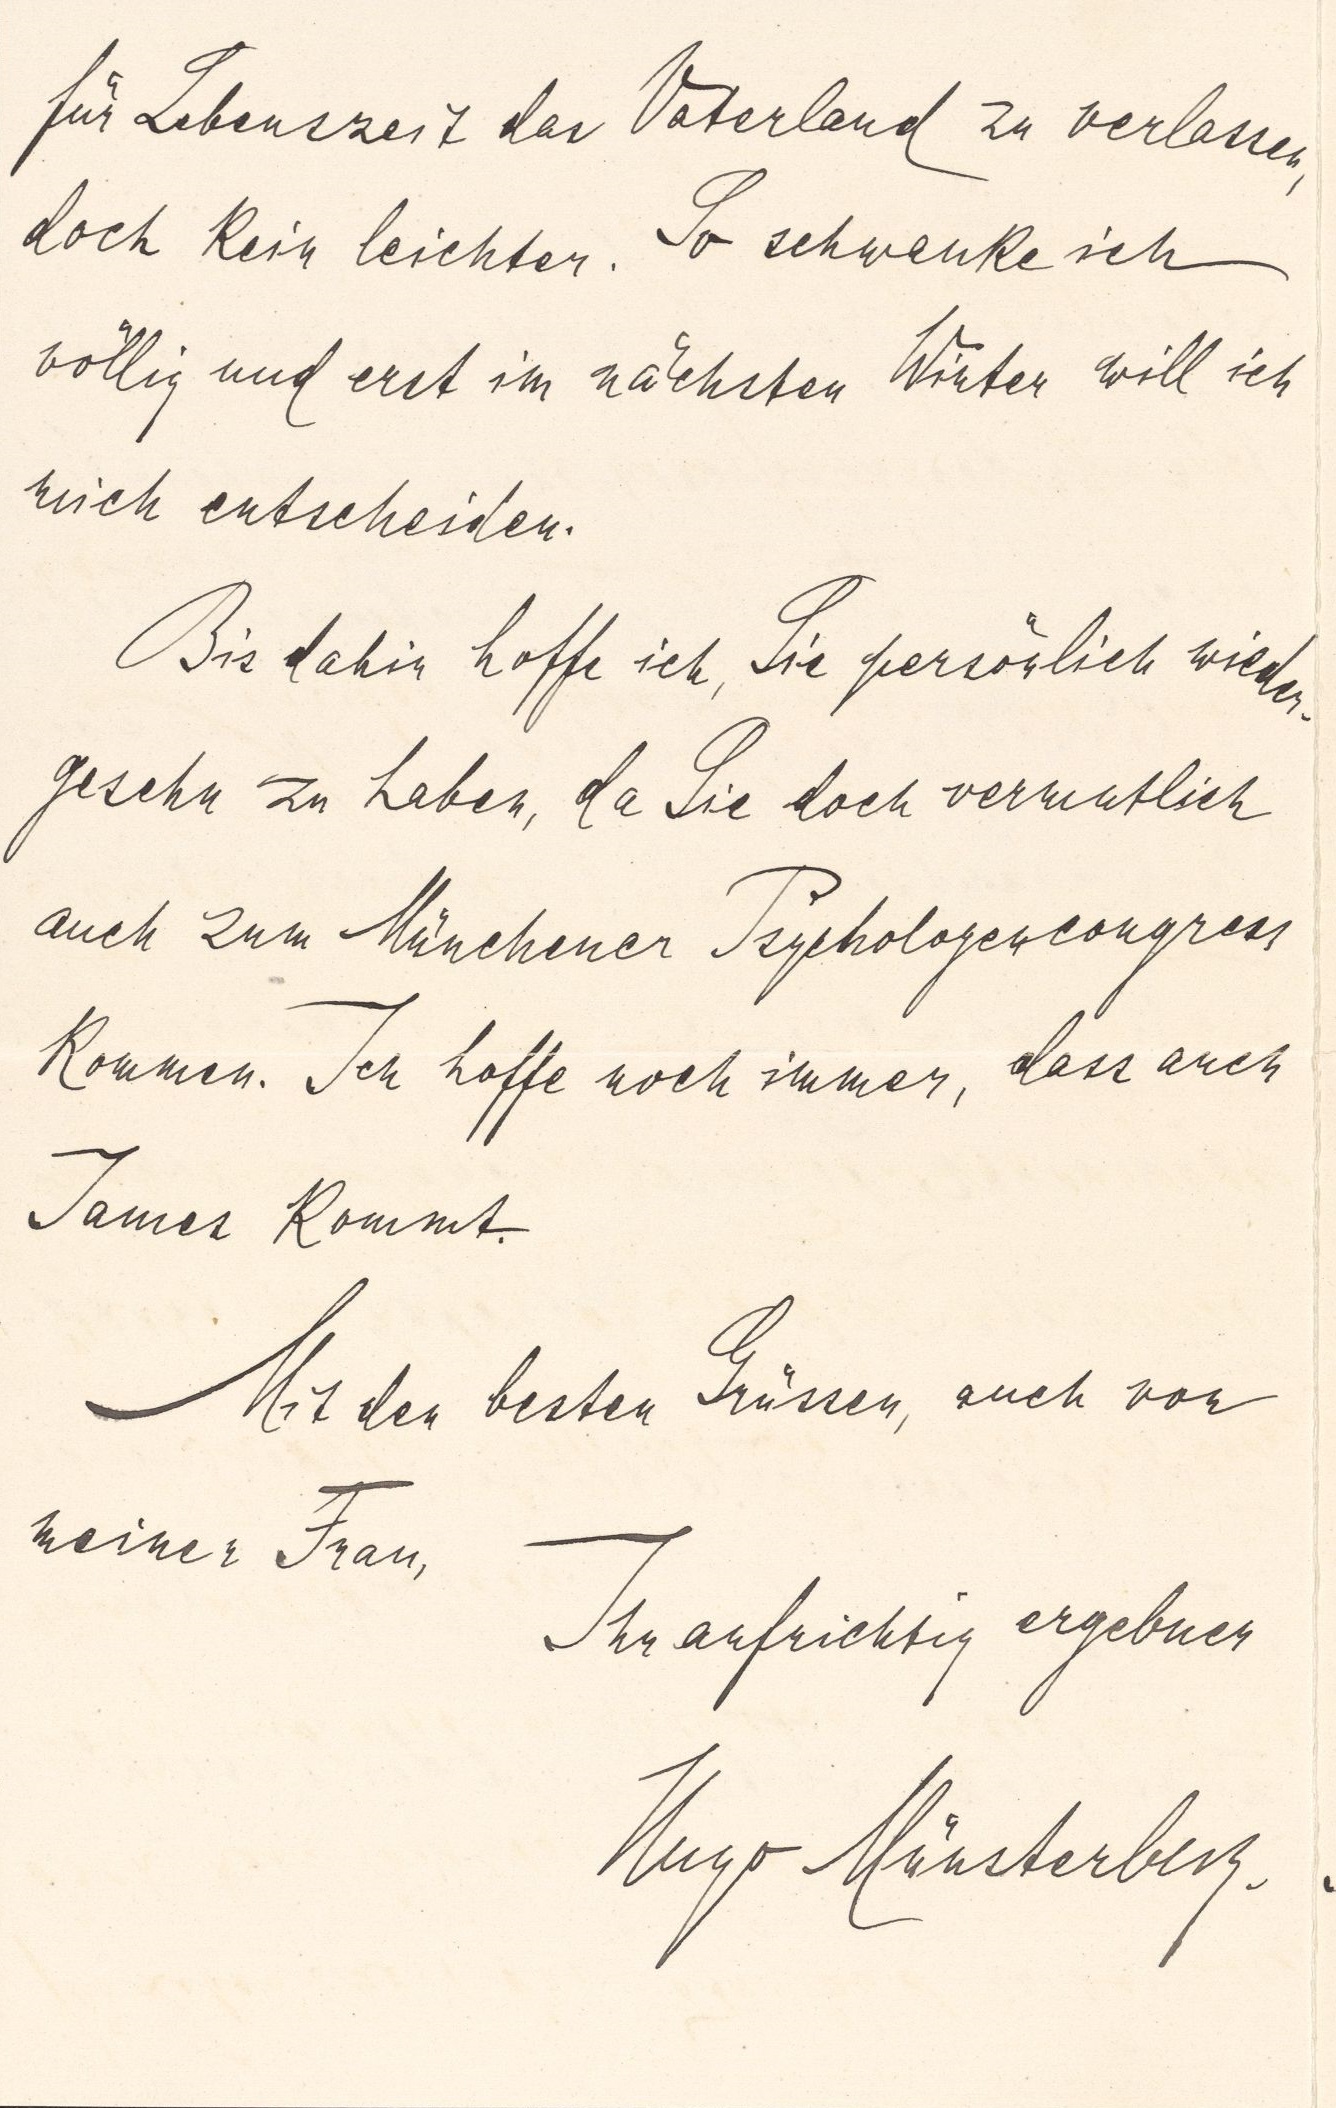 für Lebenszeit das Vaterland zu verlassen,
doch kein leichter. So schwanke ich
völlig und erst im nächsten Winter will ich
mich entscheiden.
Bis dahin hoffe ich, Sie persönlich wieder-
gesehn zu haben, da Sie doch vermutlich
auch zum Münchener Psychologencongress
kommen. Ich hoffe noch immer, dass auch
James kommt.
Mit den besten Grüssen, auch von
meiner Frau,
Ihr aufrichtig ergebner
Hugo Münsterberg.